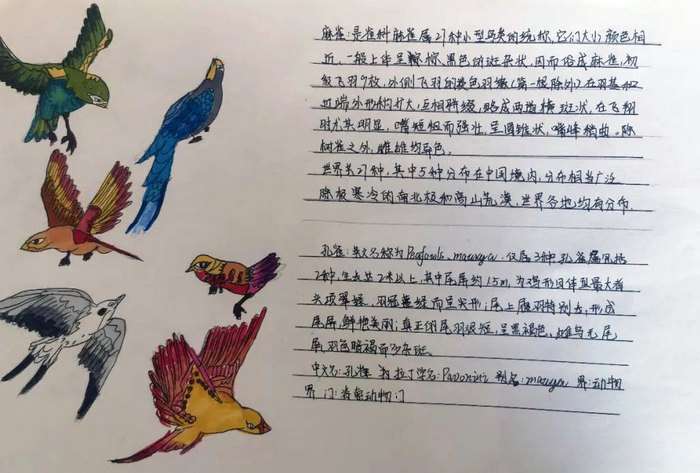 麻雀:是雀科麻雀属27种小型鸟类的统称,它们大小颜色相
近。一般上体呈棕、黑色的斑杂状,因而俗成麻雀。初
级飞羽9放,外侧飞羽的淡色羽缘(第一级除外)在羽基和
端外形构扩大,互相骈缀,略成两道横斑状,在飞翔
时尤其明显。嘴短粗而强壮,呈圆锥状,嘴峰稍曲。除
树雀之外,雌雄均异色。
世界共27种,其中5种分布在中国境内,分布相当广泛
除极寒冷的南北极和高山荒漠,世界各地均有分布.
孔雀:英文名称为Peafowls、仅属3种孔雀属包括
2种,全长达2米以上,其中尾屏约1.5m,为鸡形目体型最大者
头顶翠绿、羽冠蓝绿而呈尖形;尾上覆羽特别长,形成
尾屏,鲜艳美丽;真正的尾羽很短,呈黑褐色,雌鸟无尾
屏,羽色暗褐而多杂斑。
中文名:孔雀 拉丁学名:Pavonini 别名: 界:动物
界 门:脊索动物门